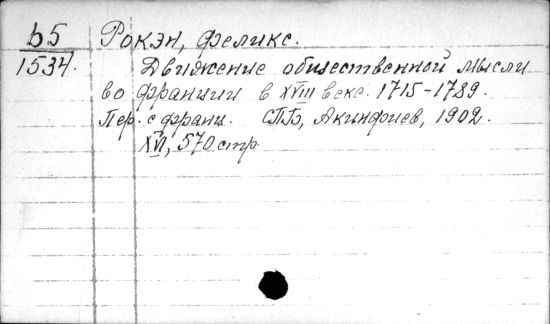 Б5 Рокэн, Феликс.
1534. Движение общественной мысли
во Франции в XVIII веке. 1715-1789.
Пер. с франц. СПБ, Акинфиев, 1902.
XVI, 570 стр.